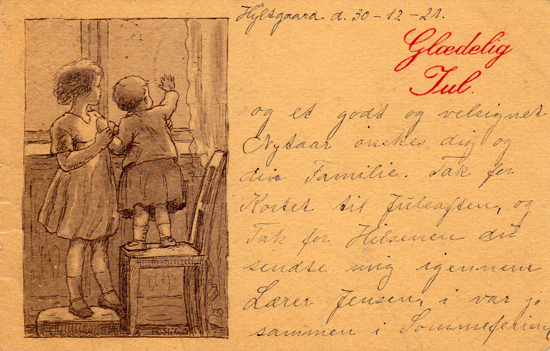 Hjltgaard d. 30-12-21.
Glædelig
Jul.
og et godt og velsignet
Nytaar ønskes dig og
din Familie. Tak for
Kortet til Juleaften, og
Tak for Hilsenen du
sendte mig igennem
Lærer Jensen, i var jo
sammen i Sommeferien,